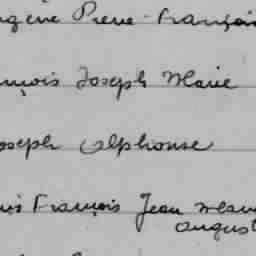 Eugène Pierre François
François Joseph Marie
Joseph Alphonse
Louis François Jean Marie
August